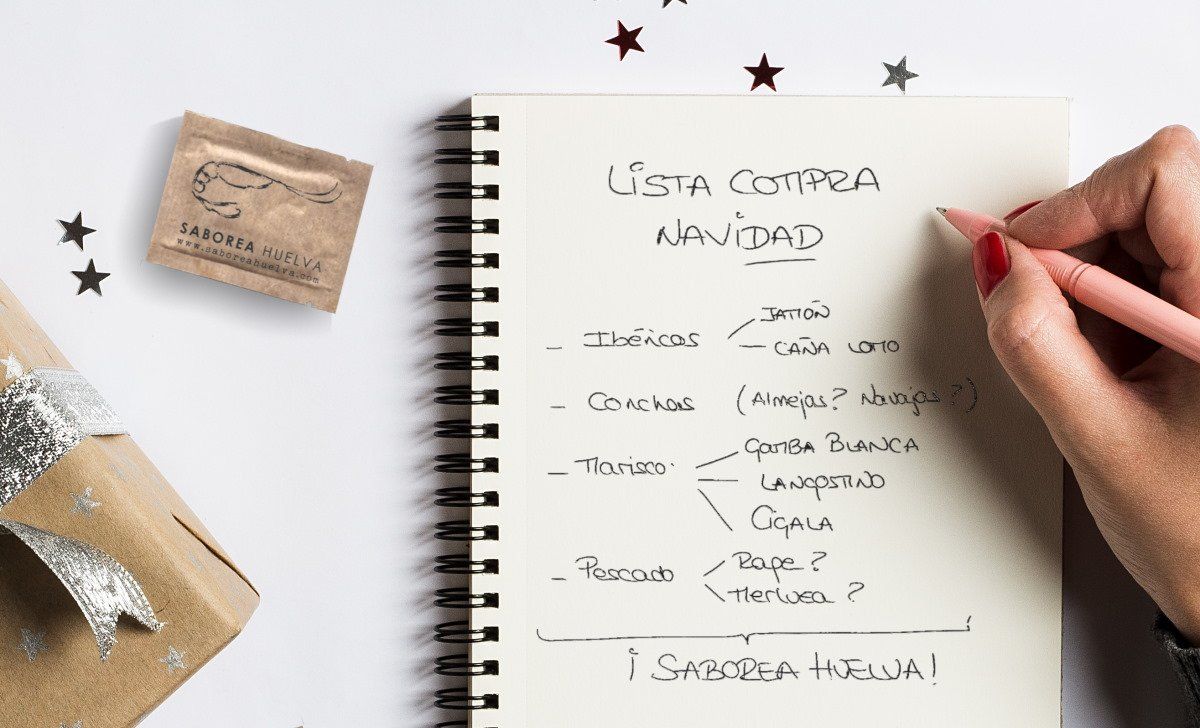 SABOREA HUELVA
www.saboreahuelva.com
LISTA COMPRA
NAVIDAD
- Ibéricos
JAMÓN
CAÑA LOMO
- Conchas (Almejas? Navajas?)
- Marisco
GAMBA BLANCA
LANGOSTINO
CIGALA
- Pescado
Rape?
Merluza?
¡SABOREA HUELVA!